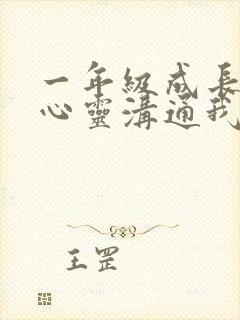 一年級成長
心靈溝通我
王罡